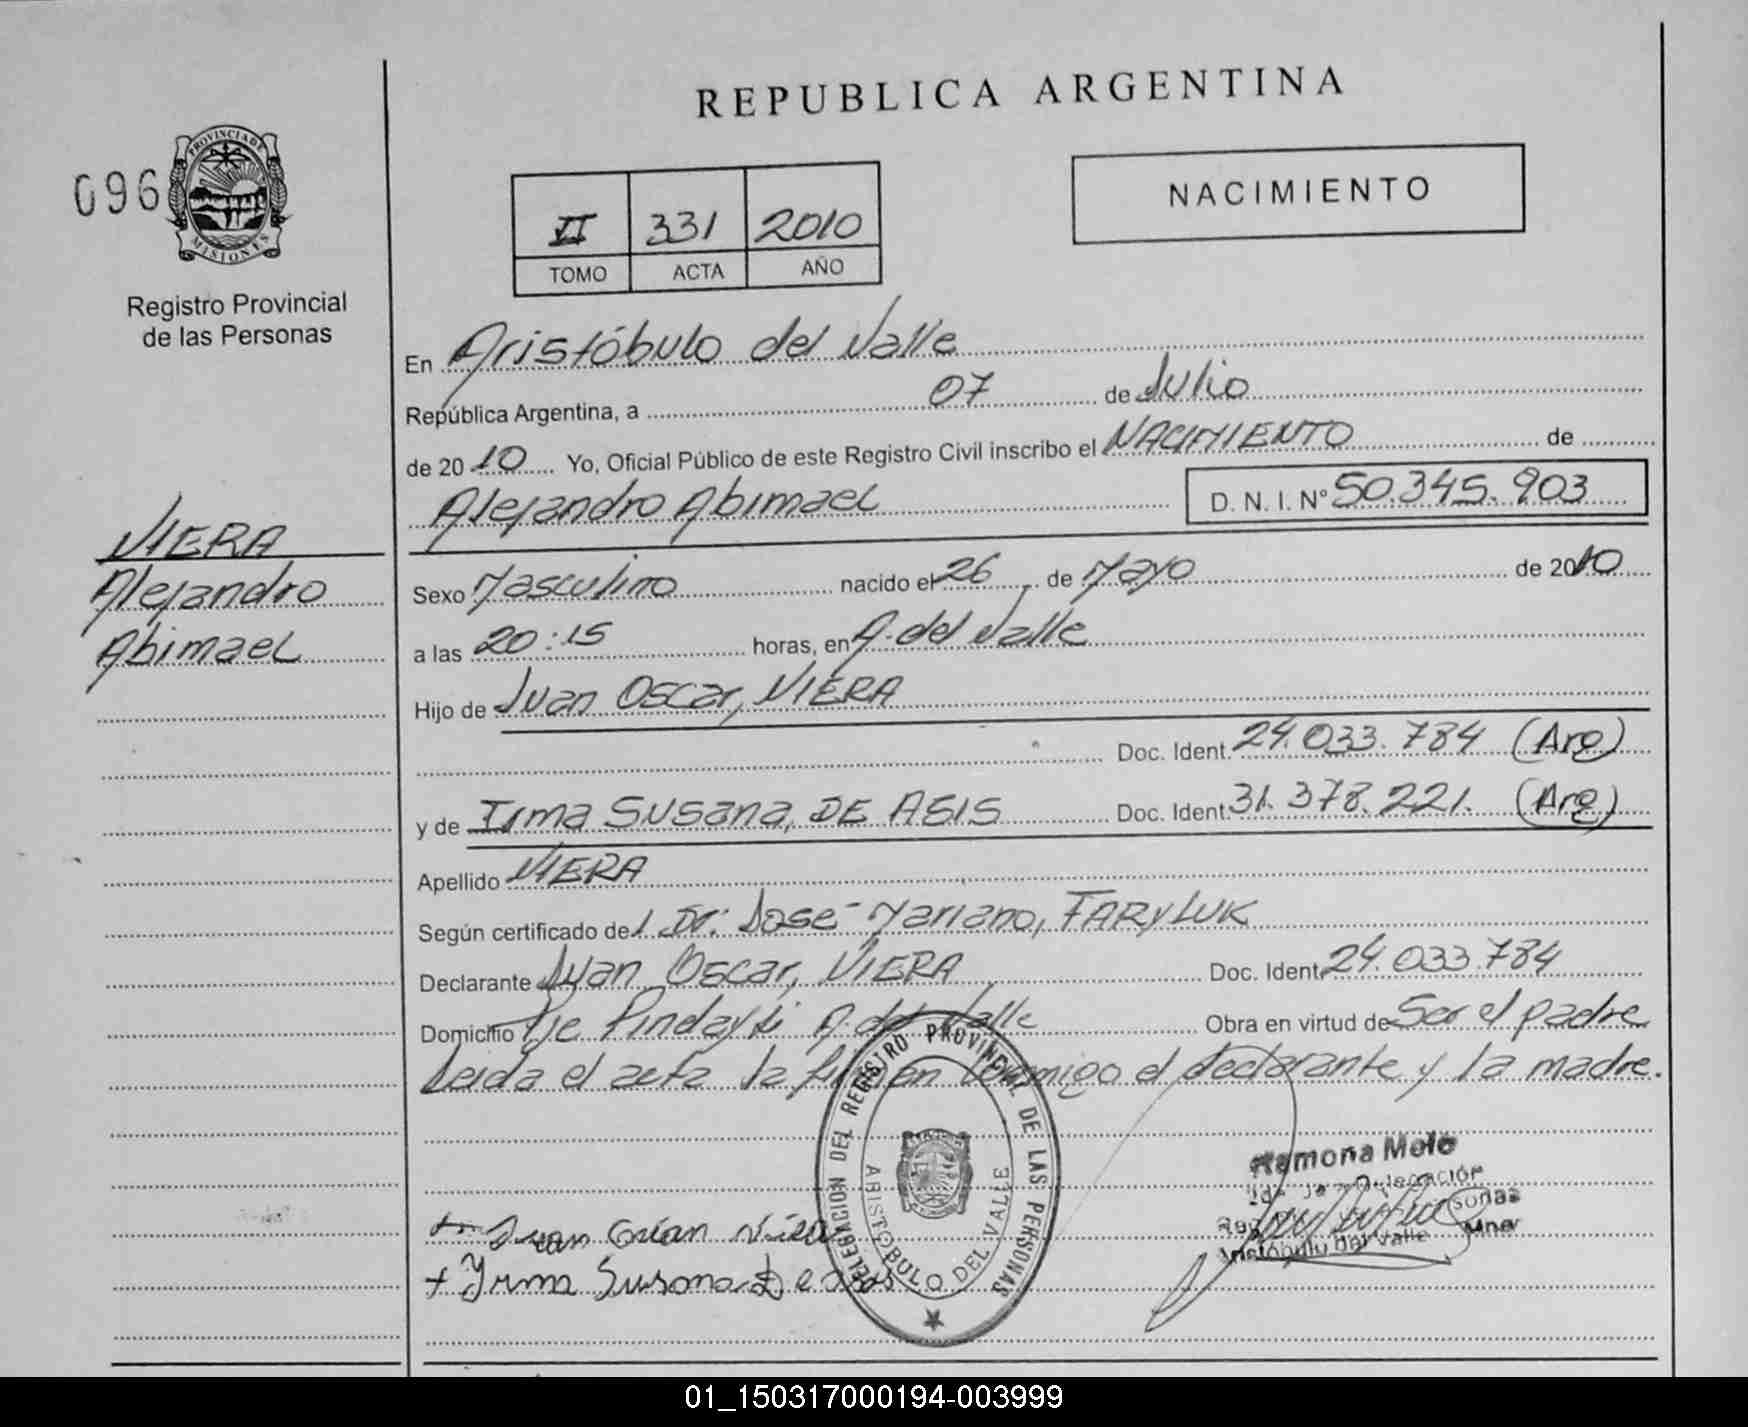 REPUBLICA ARGENTINA
096
PROVINCIA DE
MISIONES
Registro Provincial
de las Personas
II 331 2010
TOMO ACTA AÑO
NACIMIENTO
En Aristóbulo del Valle
República Argentina, a 07 de Julio
de 2010 Yo, Oficial Público de este Registro Civil inscribo el NACIMIENTO de
Alejandro Abimael D. N. I. N° 50.345.903
VIERA
Alejandro
Abimael
Sexo Masculino nacido el 26 de Mayo de 2010
a las 20:15 horas, en A. del Valle
Hijo de Juan Oscar, VIERA
Doc. Ident. 24.033.784 (Arg)
y de Irma Susana, DE ASIS Doc. Ident. 31.378.221. (Arg)
Apellido VIERA
Según certificado del Dr: José Mariano, FARYLUK
Declarante Juan Oscar, VIERA Doc. Ident. 24.033.784
Domicilio Pje Pindayti A. del Valle Obra en virtud de Ser el padre
Leida el acta la firman conmigo el declarante y la madre.
DELEGACION DEL REGISTRO PROVINCIAL DE LAS PERSONAS
ARISTOBULO DEL VALLE
Ramona Melo
Aristóbulo del Valle Mnes
Juan Viera
+ Yrma Susana De asis
01_150317000194-003999